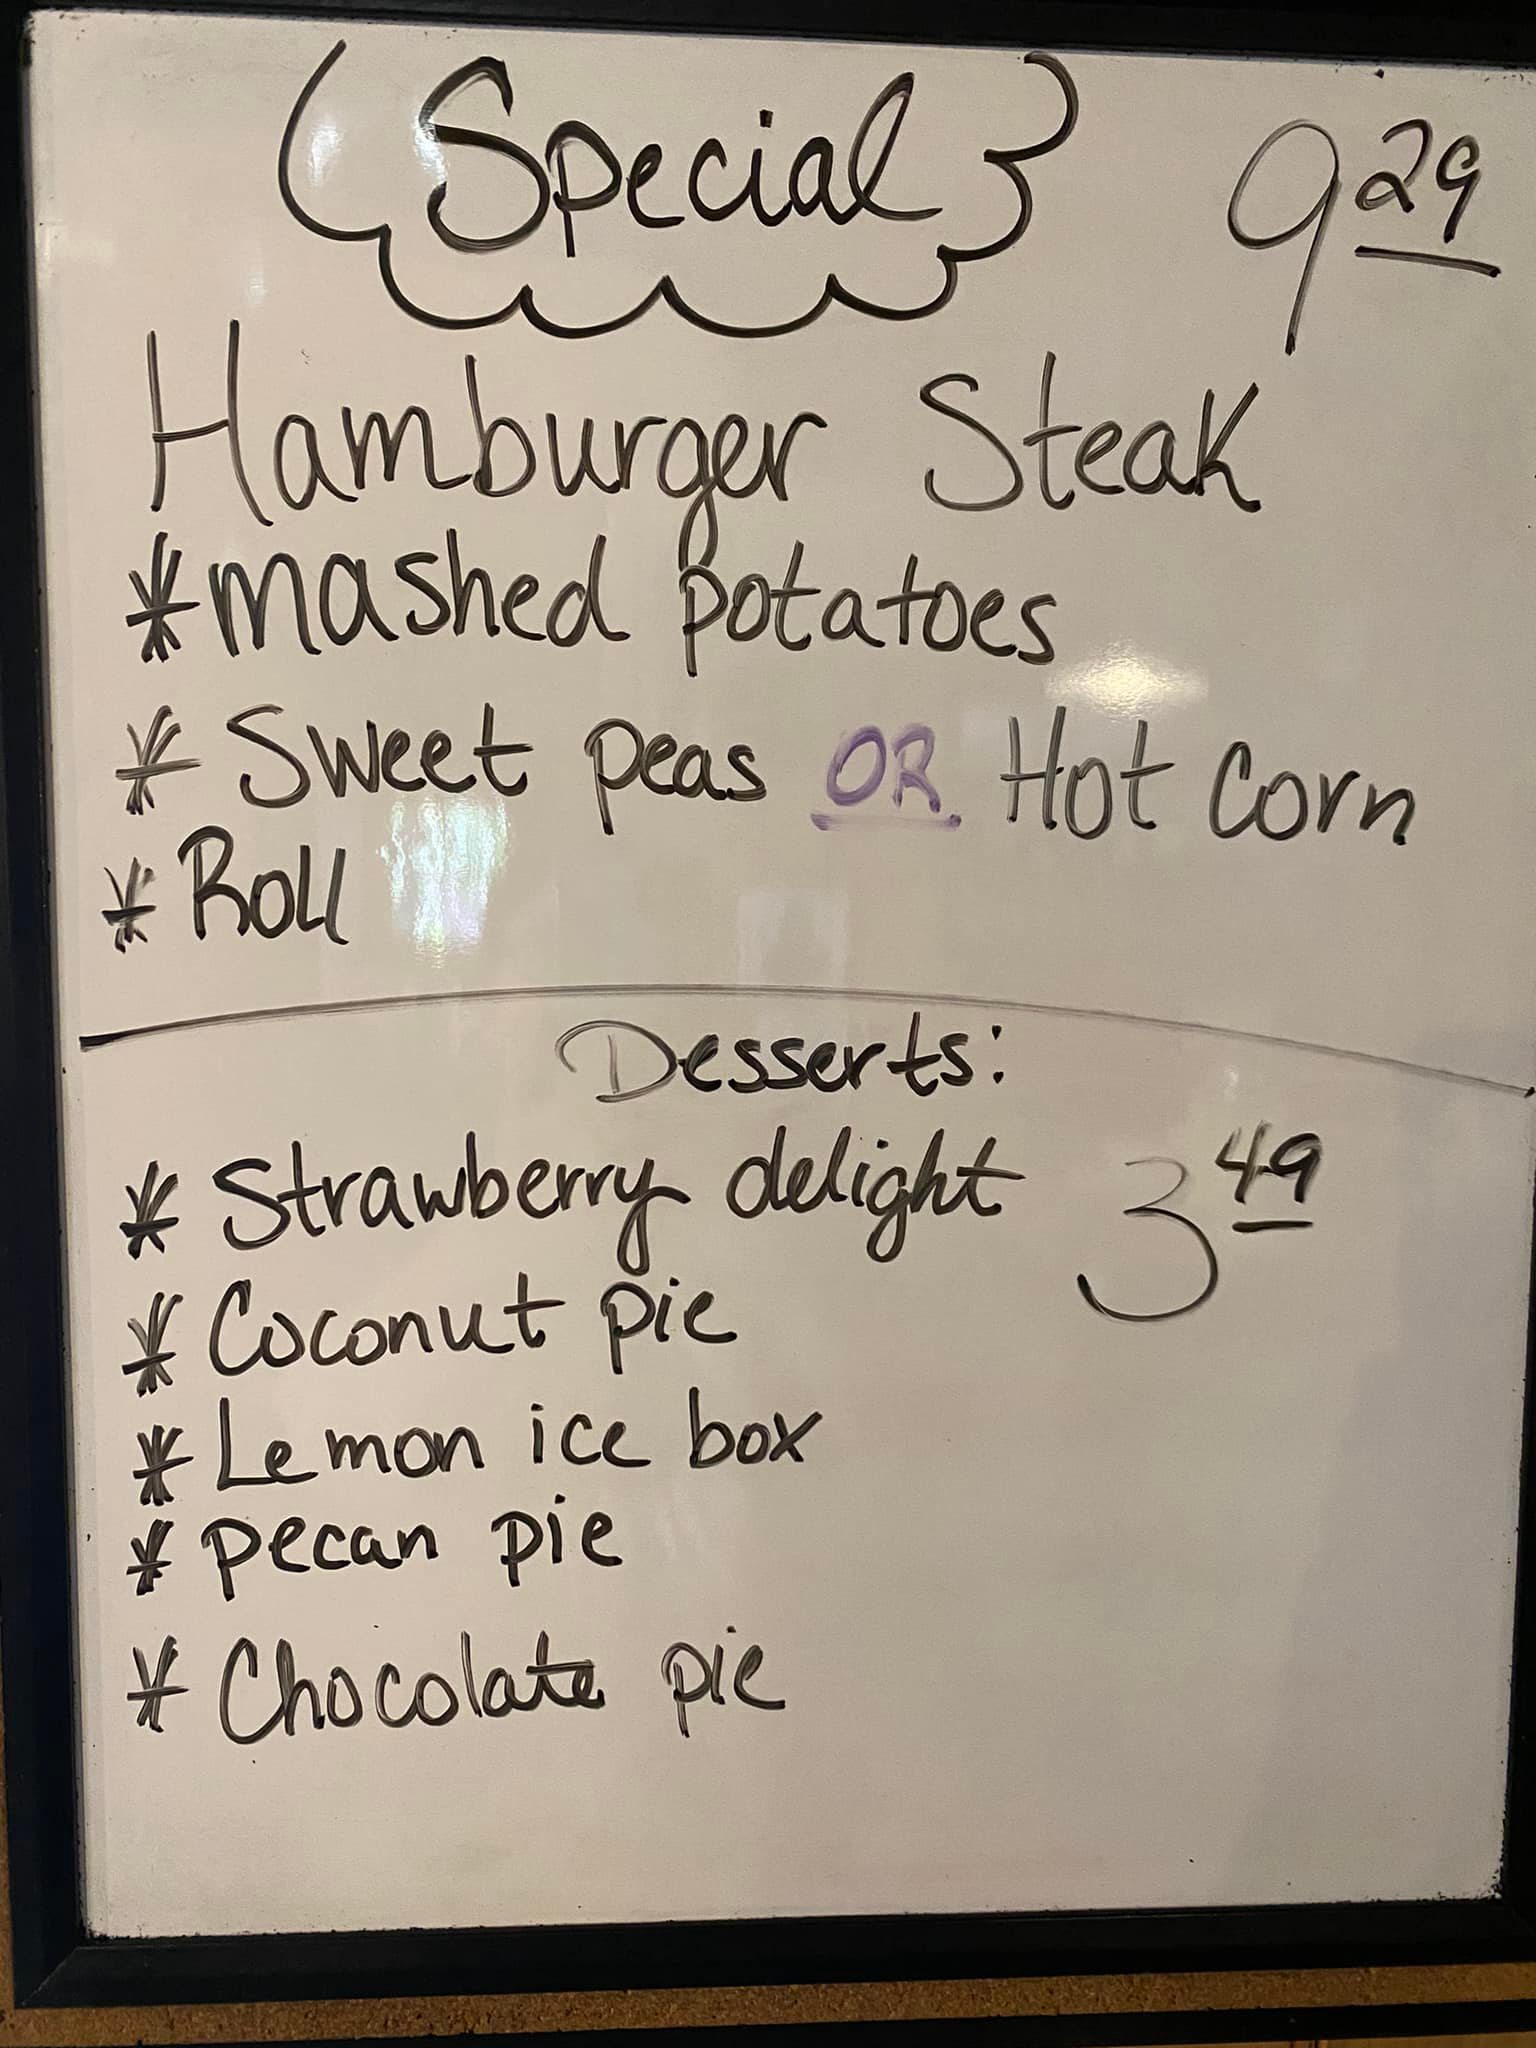 Special 9 29
Hamburger Steak
* mashed potatoes
* Sweet peas OR Hot Corn
* Roll
Desserts:
* Strawberry delight 3 49
* Coconut pie
* Lemon ice box
* pecan pie
* Chocolate pie